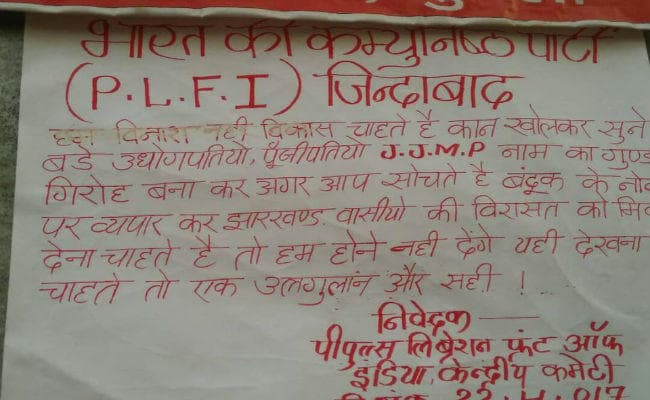 भारत की कम्युनिष्ठ पार्टी
(P.L.F.I) जिन्दाबाद
हम विनाश नही विकास चाहते है कान खोलकर सुने
बडे उधोगपतियो, पूँजीपतियो J.J.M.P नाम का गुण्ड
गिरोह बना कर अगर आप सोचते है बंदूक के नोक
पर व्यपार कर झारखण्ड वासीयो की विरासत को मि
देना चाहते है तो हम होने नही देंगे यही देखना
चाहते तो एक उलगुलांन और सही !
निवेदक —
पीपुल्स लिबरेशन फ्रंट ऑफ
इंडिया, केन्दीय कमेटी
22.4.017